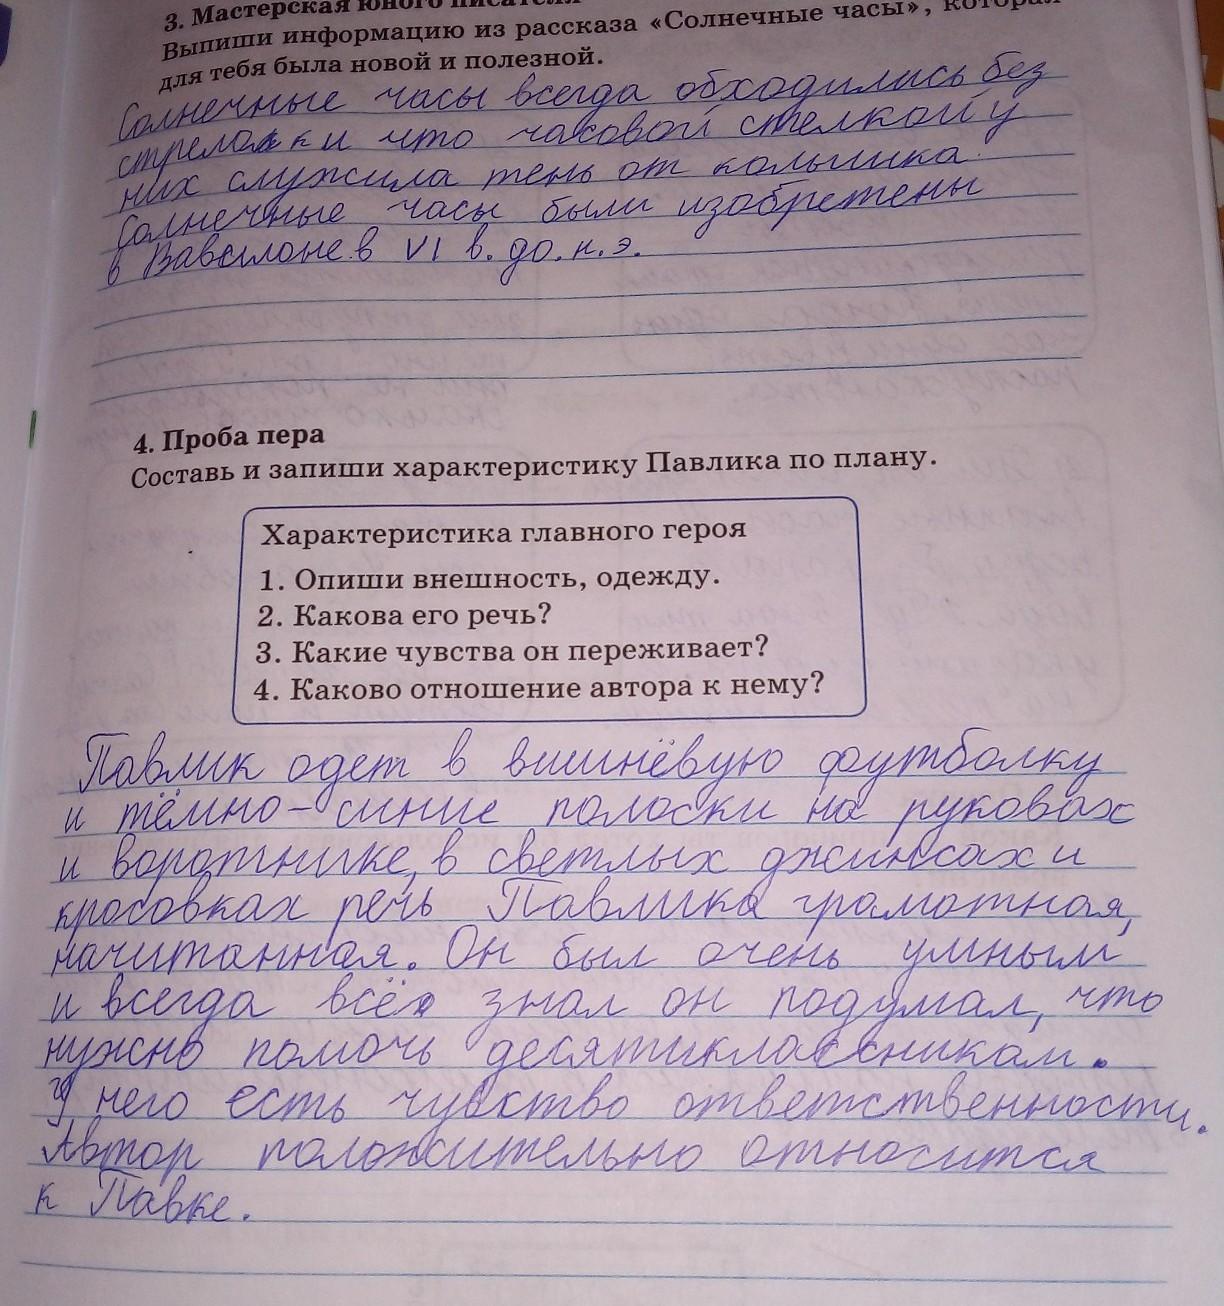 3. Мастерская юного писателя
Выпиши информацию из рассказа «Солнечные часы», которая
для тебя была новой и полезной.
Солнечные часы всегда обходились без
стрелок и что часовой стелкой у
них служила тень от колышка.
Солнечные часы были изобретены
в Вавилоне в VI в. до. н. э.
4. Проба пера
Составь и запиши характеристику Павлика по плану.
Характеристика главного героя
1. Опиши внешность, одежду.
2. Какова его речь?
3. Какие чувства он переживает?
4. Каково отношение автора к нему?
Павлик одет в вишнёвую футболку
и тёмно-синие полоски на руковах
и воротнике, в светлых джинсах и
кросовках речь Павлика грамотная,
начитанная. Он был очень умным
и всегда всё знал он подумал, что
нужно помочь десятиклассникам.
У него есть чувство ответственности.
Автор положительно относится
к Павке.